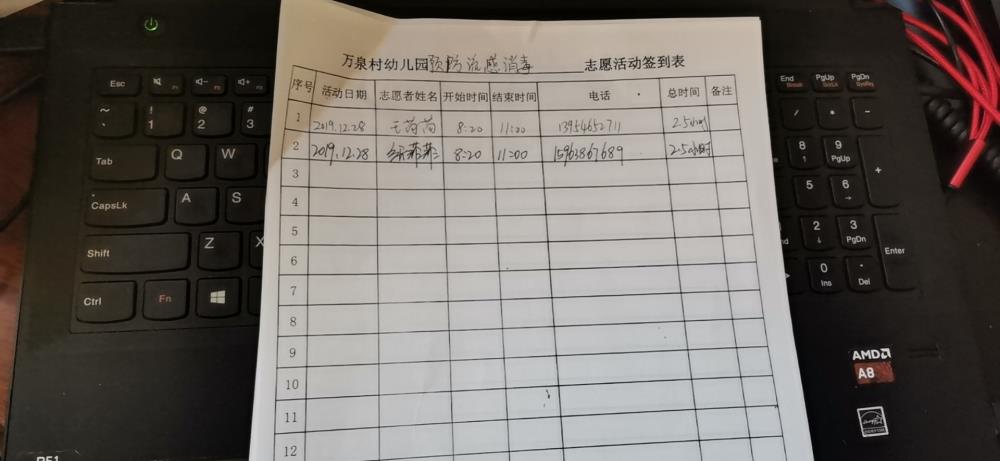 万泉村幼儿园预防流感消毒 志愿活动签到表
序号 活动日期 志愿者姓名 开始时间 结束时间 电话 总时间 备注
1 2019.12.28 王荷荷 8:20 11:00 13954652711 2.5小时
2 2019.12.28 8:20 11:00 15963867689 2.5小时
3
4
5
6
7
8
9
10
11
12
Esc F1 F2
~ ` ! 1 @ 2 # 3
Tab Q W
CapsLk A S
Shift Z X
Ctrl Fn
End PgUp PgDn
Break ScrLk SysRq
/ * -
8 9 PgUp +
5 6
2 3 PgDn
0 Ins . Del Enter
AMD
A8
ENERGY STAR